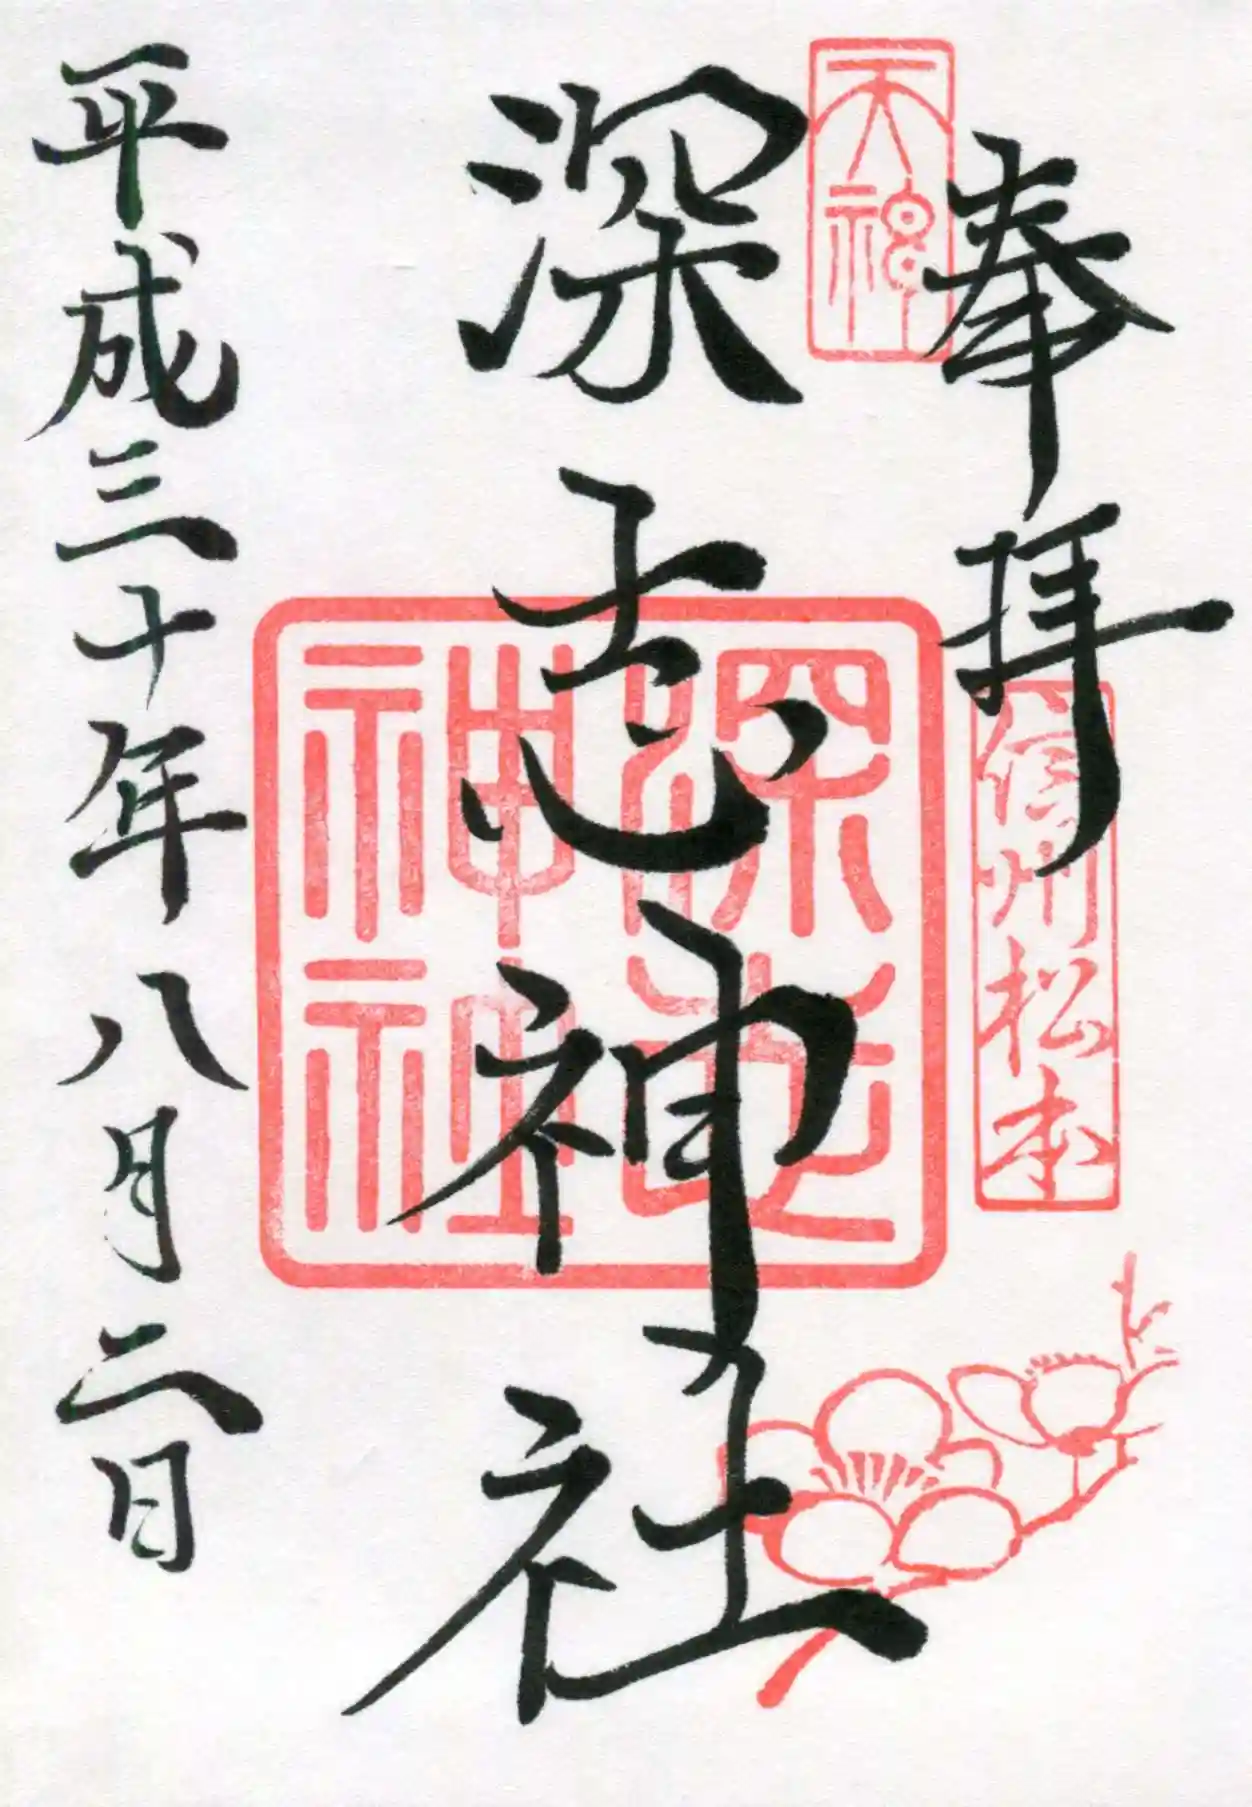 奉拝
天神
信州松本
深志神社
深志神社
平成三十年八月二日